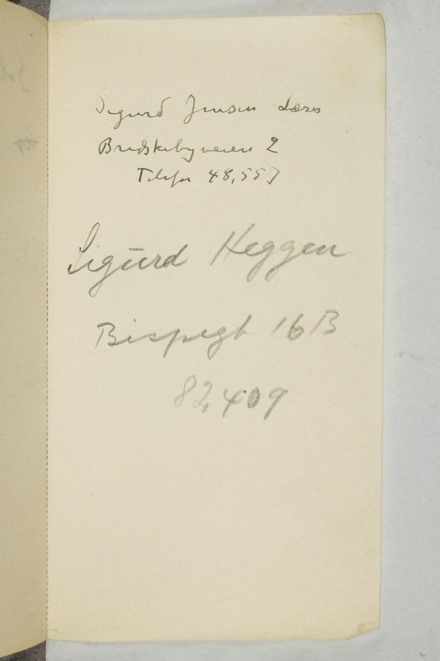 Sigurd Jensen Lærer
Bredskebyveien 2
Telefon 48,557
Sigurd Heggen
Bispegt 16 B
82,409